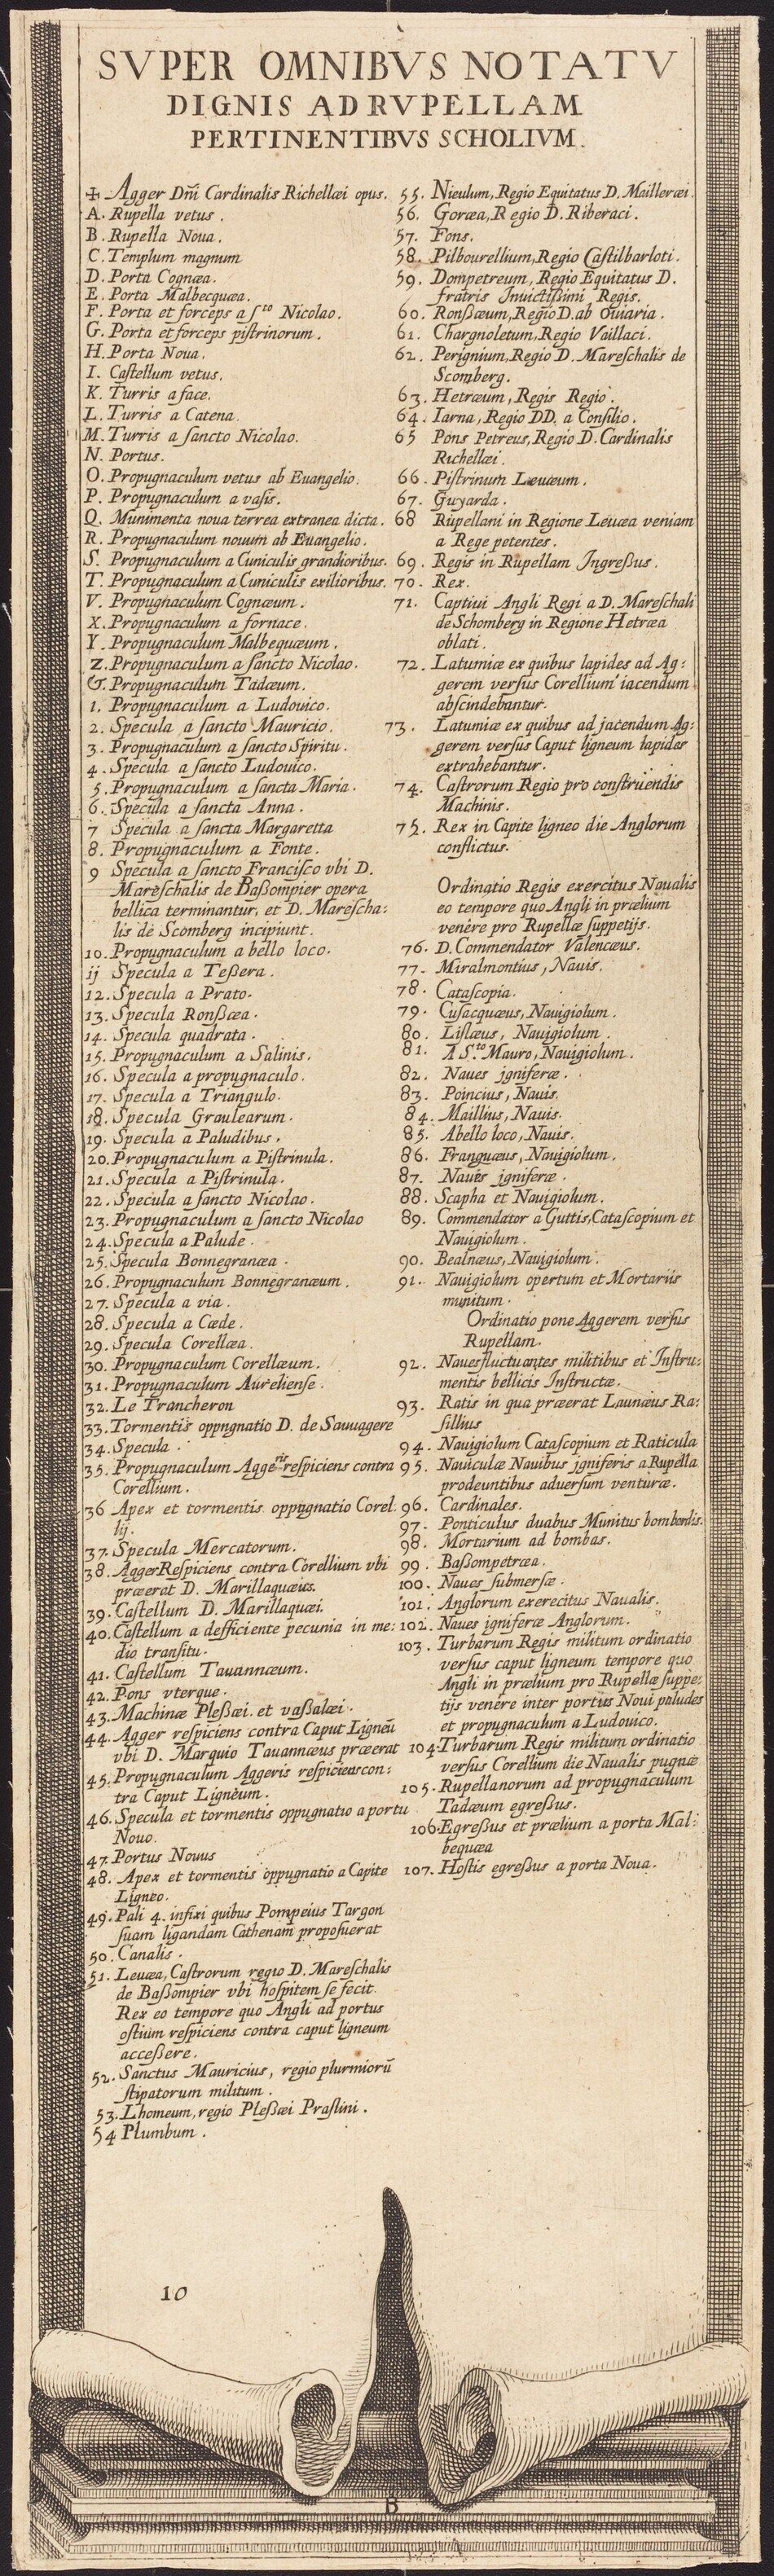 SVPER OMNIBVS NOTATV
DIGNIS AD RVPELLAM
PERTINENTIBVS SCHOLIVM.
✢ Agger Dñi Cardinalis Richellæi opus.
A. Rupella vetus.
B. Rupella Noua.
C. Templum magnum
D. Porta Cognæa.
E. Porta Malbecquæa.
F. Porta et forceps a Sto Nicolao.
G. Porta et forceps pistrinorum.
H. Porta Noua.
I. Castellum vetus.
K. Turris a face.
L. Turris a Catena.
M. Turris a sancto Nicolao.
N. Portus.
O. Propugnaculum vetus ab Euangelio.
P. Propugnaculum a vasis.
Q. Munimenta noua terrea extranea dicta.
R. Propugnaculum nouum ab Euangelio.
S. Propugnaculum a Cuniculis grandioribus.
T. Propugnaculum a Cuniculis exilioribus.
V. Propugnaculum Cognæum.
X. Propugnaculum a fornace.
Y. Propugnaculum Malbequæum.
Z. Propugnaculum a sancto Nicolao.
&. Propugnaculum Tadæum.
1. Propugnaculum a Ludouico.
2. Specula a sancto Mauricio.
3. Propugnaculum a sancto Spiritu.
4. Specula a sancto Ludouico.
5. Propugnaculum a sancta Maria.
6. Specula a sancta Anna.
7 Specula a sancta Margaretta
8. Propugnaculum a Fonte.
9 Specula a sancto Francisco vbi D.
Mareschalis de Baßompier opera
bellica terminantur, et D. Marescha:
lis de Scomberg incipiunt.
10. Propugnaculum a bello loco.
ij Specula a Teßera.
12. Specula a Prato.
13. Specula Ronßæa.
14. Specula quadrata.
15. Propugnaculum a Salinis.
16. Specula a propugnaculo.
17. Specula a Triangulo.
18. Specula Graulearum.
19. Specula a Paludibus.
20. Propugnaculum a Pistrinula.
21. Specula a Pistrinula.
22. Specula a sancto Nicolao.
23. Propugnaculum a sancto Nicolao
24. Specula a Palude.
25. Specula Bonnegranæa.
26. Propugnaculum Bonnegranæum.
27. Specula a via.
28. Specula a Cæde.
29. Specula Corellæa.
30. Propugnaculum Corellæum.
31. Propugnaculum Aureliense.
32. Le Trancheron
33. Tormentis oppngnatio D. de Sauuagere
34. Specula.
35. Propugnaculum Aggeris respiciens contra
Corellium.
36 Apex et tormentis oppugnatio Corel
lij.
37. Specula Mercatorum.
38. Agger Respiciens contra Corellium vbi
præerat D. Marillaquæus.
39. Castellum D. Marillaquæi.
40. Castellum a defficiente pecunia in me:
dio transitu.
41. Castellum Tauannæum.
42. Pons vterque.
43. Machinæ Pleßæi. et vaßalæi.
44. Agger respiciens contra Caput Ligneũ
vbi D. Marquio Tauannæus præerat
45. Propugnaculum Aggeris respiciens con:
tra Caput Ligneum.
46. Specula et tormentis oppugnatio a portu
Nouo.
47. Portus Nouus
48. Apex et tormentis oppugnatio a Capite
Ligneo.
49. Pali 4. infixi quibus Pompeius Targon
suam ligandam Cathenam proposuerat
50. Canalis.
51. Leuæa, Castrorum regio D. Mareschalis
de Baßompier vbi hospitem se fecit
Rex eo tempore quo Angli ad portus
ostium respiciens contra caput ligneum
acceßere.
52. Sanctus Mauricius, regio plurmiorũ
stipatorum militum.
53. Lhomeum, regio Pleßæi Praslini.
54 Plumbum.
55. Nieulum, Regio Equitatus D. Mailleræi.
56. Goræa, Regio D. Riberaci.
57. Fons.
58. Pilbourellium, Regio Castilbarloti.
59. Dompetreum, Regio Equitatus D.
fratris Inuictissimi Regis.
60. Ronßæum, Regio D. ab Ouiaria.
61. Chargnoletum, Regio Vaillaci.
62. Perignium, Regio D. Mareschalis de
Scomberg.
63. Hetræum, Regis Regio.
64. Iarna, Regio DD. a Consilio.
65 Pons Petreus, Regio D. Cardinalis
Richellæi.
66. Pistrinum Leuæum.
67. Guyarda.
68 Rupellani in Regione Leuæa veniam
a Rege petentes.
69. Regis in Rupellam Ingreßus.
70. Rex.
71. Captiui Angli Regi a D. Mareschali
de Schomberg in Regione Hetræa
oblati.
72. Latumiæ ex quibus lapides ad Ag:
gerem versus Corellium iacendum
abscindebantur.
73. Latumiæ ex quibus ad jacendum Ag:
gerem versus Caput ligneum lapides
extrahebantur.
74. Castrorum Regio pro construendis
Machinis.
75. Rex in Capite ligneo die Anglorum
conflictus.
Ordinatio Regis exercitus Naualis
eo tempore quo Angli in prælium
venere pro Rupellæ suppetijs.
76. D. Commendator Valencæus.
77. Miralmontius, Nauis.
78. Catascopia.
79. Cusacquæus, Nauigiolum.
80. Lislæus, Nauigiolum.
81. A S.to Mauro, Nauigiolum.
82. Naues jgniferæ.
83. Poincius, Nauis.
84. Maillius, Nauis.
85. Abello loco, Nauis.
86. Franguæus, Nauigiolum.
87. Naues jgniferæ.
88. Scapha et Nauigiolum.
89. Commendator a Guttis, Catascopium et
Nauigiolum.
90. Bealnæus, Nauigiolum.
91. Nauigiolum opertum et Mortariis
munitum.
Ordinatio pone Aggerem versus
Rupellam.
92. Naues fluctuantes militibus et Instru:
mentis bellicis Instructæ.
93. Ratis in qua præerat Launæus Ra:
sillius
94. Nauigiolum Catascopium et Raticula
95. Nauiculæ Nauibus jgniferis a Rupella
prodeuntibus aduersum venturæ.
96. Cardinales.
97. Ponticulus duabus Munitus bombardis.
98. Mortarium ad bombas.
99. Baßompetræa.
100. Naues submersæ.
101. Anglorum exerecitus Naualis.
102. Naues igniferæ Anglorum.
103. Turbarum Regis militum ordinatio
versus caput ligneum tempore quo
Angli in prælium pro Rupellæ suppe:
tijs venére inter portus Noui paludes
et propugnaculum a Ludouico.
104. Turbarum Regis militum ordinatio
versus Corellium die Naualis pugnæ
105. Rupellanorum ad propugnaculum
Tadæum egreßus.
106. Egreßus et prælium a porta Mal:
bequæa
107. Hostis egreßus a porta Noua.
10
B